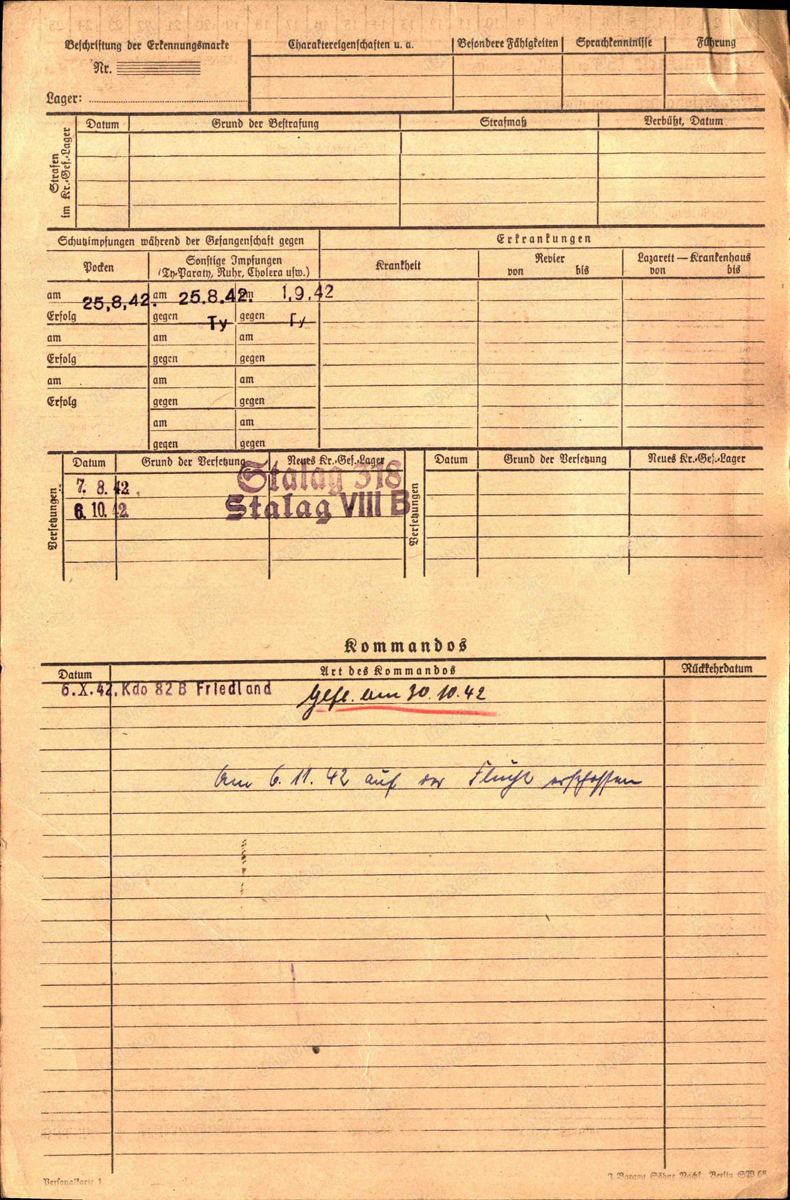 Beschriftung der Erkennungsmarke
Nr.
Lager:
Charaktereigenschaften u. a.
Besondere Fähigkeiten
Sprachkenntnisse
Führung
Strafen im Kr.-Gef.-Lager
Datum
Grund der Bestrafung
Strafmaß
Verbüßt, Datum
Schutzimpfungen während der Gefangenschaft gegen
Erkrankungen
Pocken
Sonstige Impfungen
(Ty-Paraty, Ruhr, Cholera usw.)
Krankheit
Revier
von bis
Lazarett — Krankenhaus
von bis
am 25,8,42. am 25.8.42. am 1,9,42
Erfolg gegen Ty gegen Ty
am am am
Erfolg gegen gegen
am am am
Erfolg gegen gegen
am am
gegen gegen
Versetzungen
Datum Grund der Versetzung Neues Kr.-Gef.-Lager
7. 8. 42. Stalag 318
6. 10. 42 Stalag VIII B
Versetzungen
Datum Grund der Versetzung Neues Kr.-Gef.-Lager
Kommandos
Datum Art des Kommandos Rückkehrdatum
6.X.42, Kdo 82 B Friedland Gefl. am 30.10.42
Am 6.11.42 auf der Flucht erschossen
Personalkarte 1